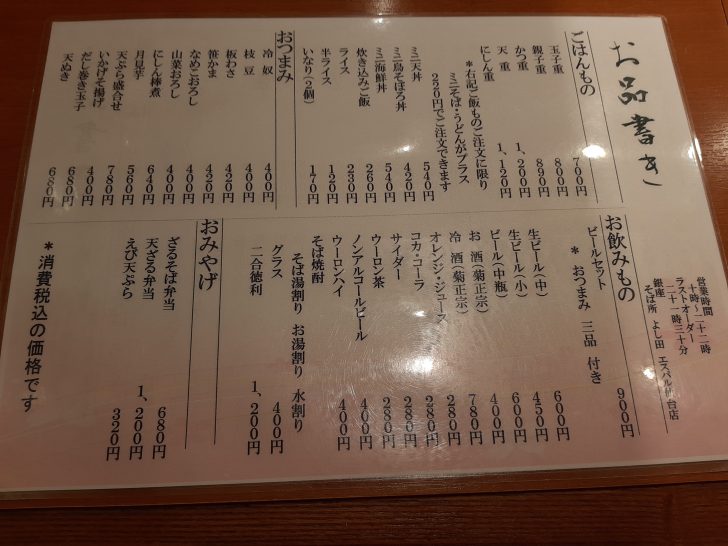 お品書き
ごはんもの
玉子重 700円
親子重 800円
かつ重 890円
天 重 1,200円
にしん重 1,120円
*右記ご飯ものご注文に限り
ミニそば・うどんがプラス
220円でご注文できます
ミニ天丼 540円
ミニ鳥そぼろ丼 420円
ミニ海鮮丼 540円
炊き込みご飯 260円
ライス 230円
半ライス 120円
いなり(2個) 170円
おつまみ
冷 奴 400円
枝 豆 400円
板わさ 420円
笹かま 420円
なめこおろし 400円
山菜おろし 400円
にしん棒煮 640円
月見芋 560円
天ぷら盛合せ 780円
いかげそ揚げ 400円
だし巻き玉子 680円
天ぬき 680円
営業時間
十時~二十二時
ラストオーダー
二十一時三十分
銀座
そば所 よし田 エスパル仙台店
お飲みもの
ビールセット 900円
* おつまみ 三品 付き
生ビール(中) 600円
生ビール(小) 450円
ビール(中瓶) 600円
お 酒(菊正宗) 400円
冷 酒(菊正宗) 780円
オレンジ・ジュース 280円
コカ・コーラ 280円
サイダー 280円
ウーロン茶 280円
ノンアルコールビール 400円
ウーロンハイ 400円
そば焼酎
そば湯割り お湯割り 水割り
グラス 400円
二合徳利 1,200円
おみやげ
ざるそば弁当 680円
天ざる弁当 1,200円
えび天ぷら 320円
*消費税込の価格です